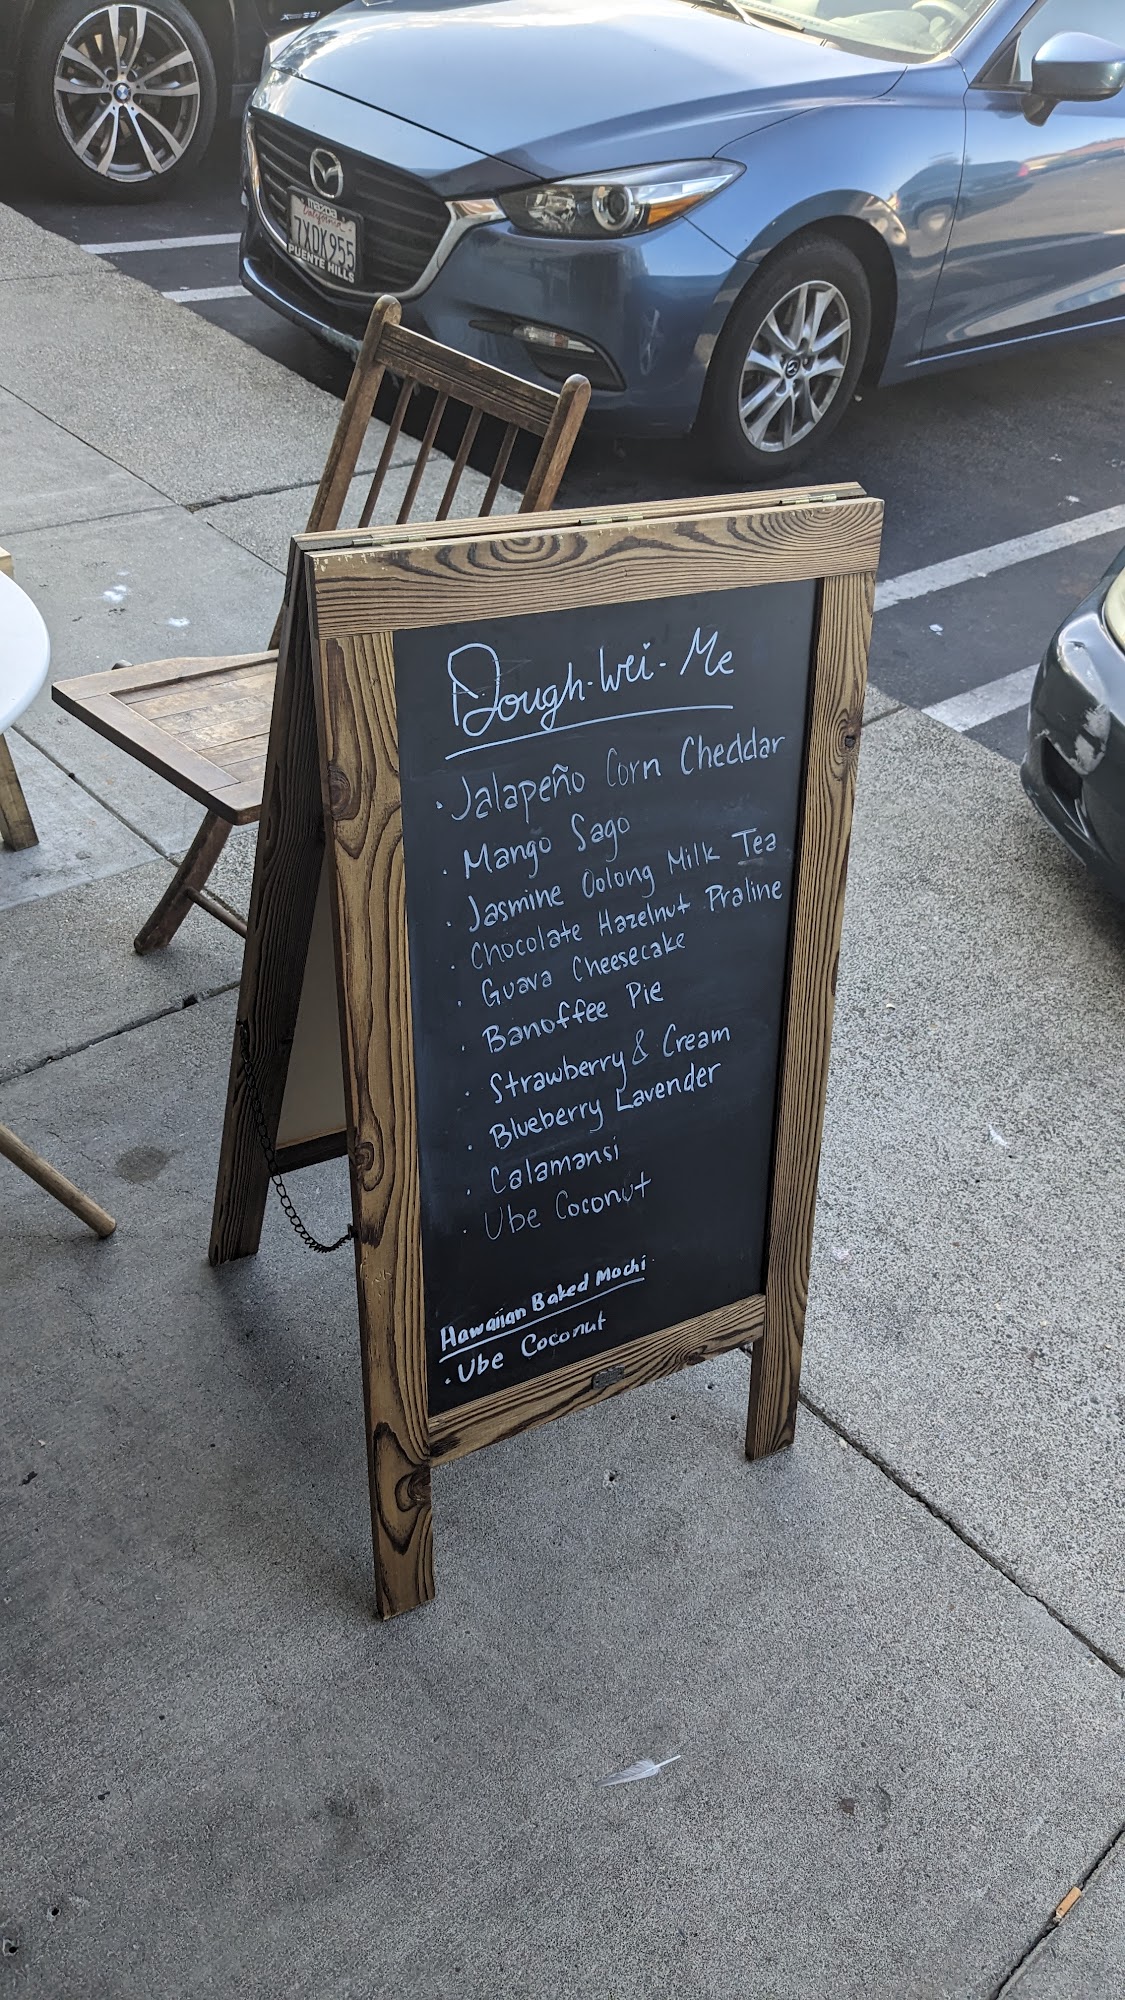 Dough-Wei-Me
· Jalapeño Corn Cheddar
· Mango Sago
· Jasmine Oolong Milk Tea
· Chocolate Hazelnut Praline
· Guava Cheesecake
· Banoffee Pie
· Strawberry & Cream
· Blueberry Lavender
· Calamansi
· Ube Coconut
Hawaiian Baked Mochi
· Ube Coconut
California
7XDK955
PUENTE HILLS